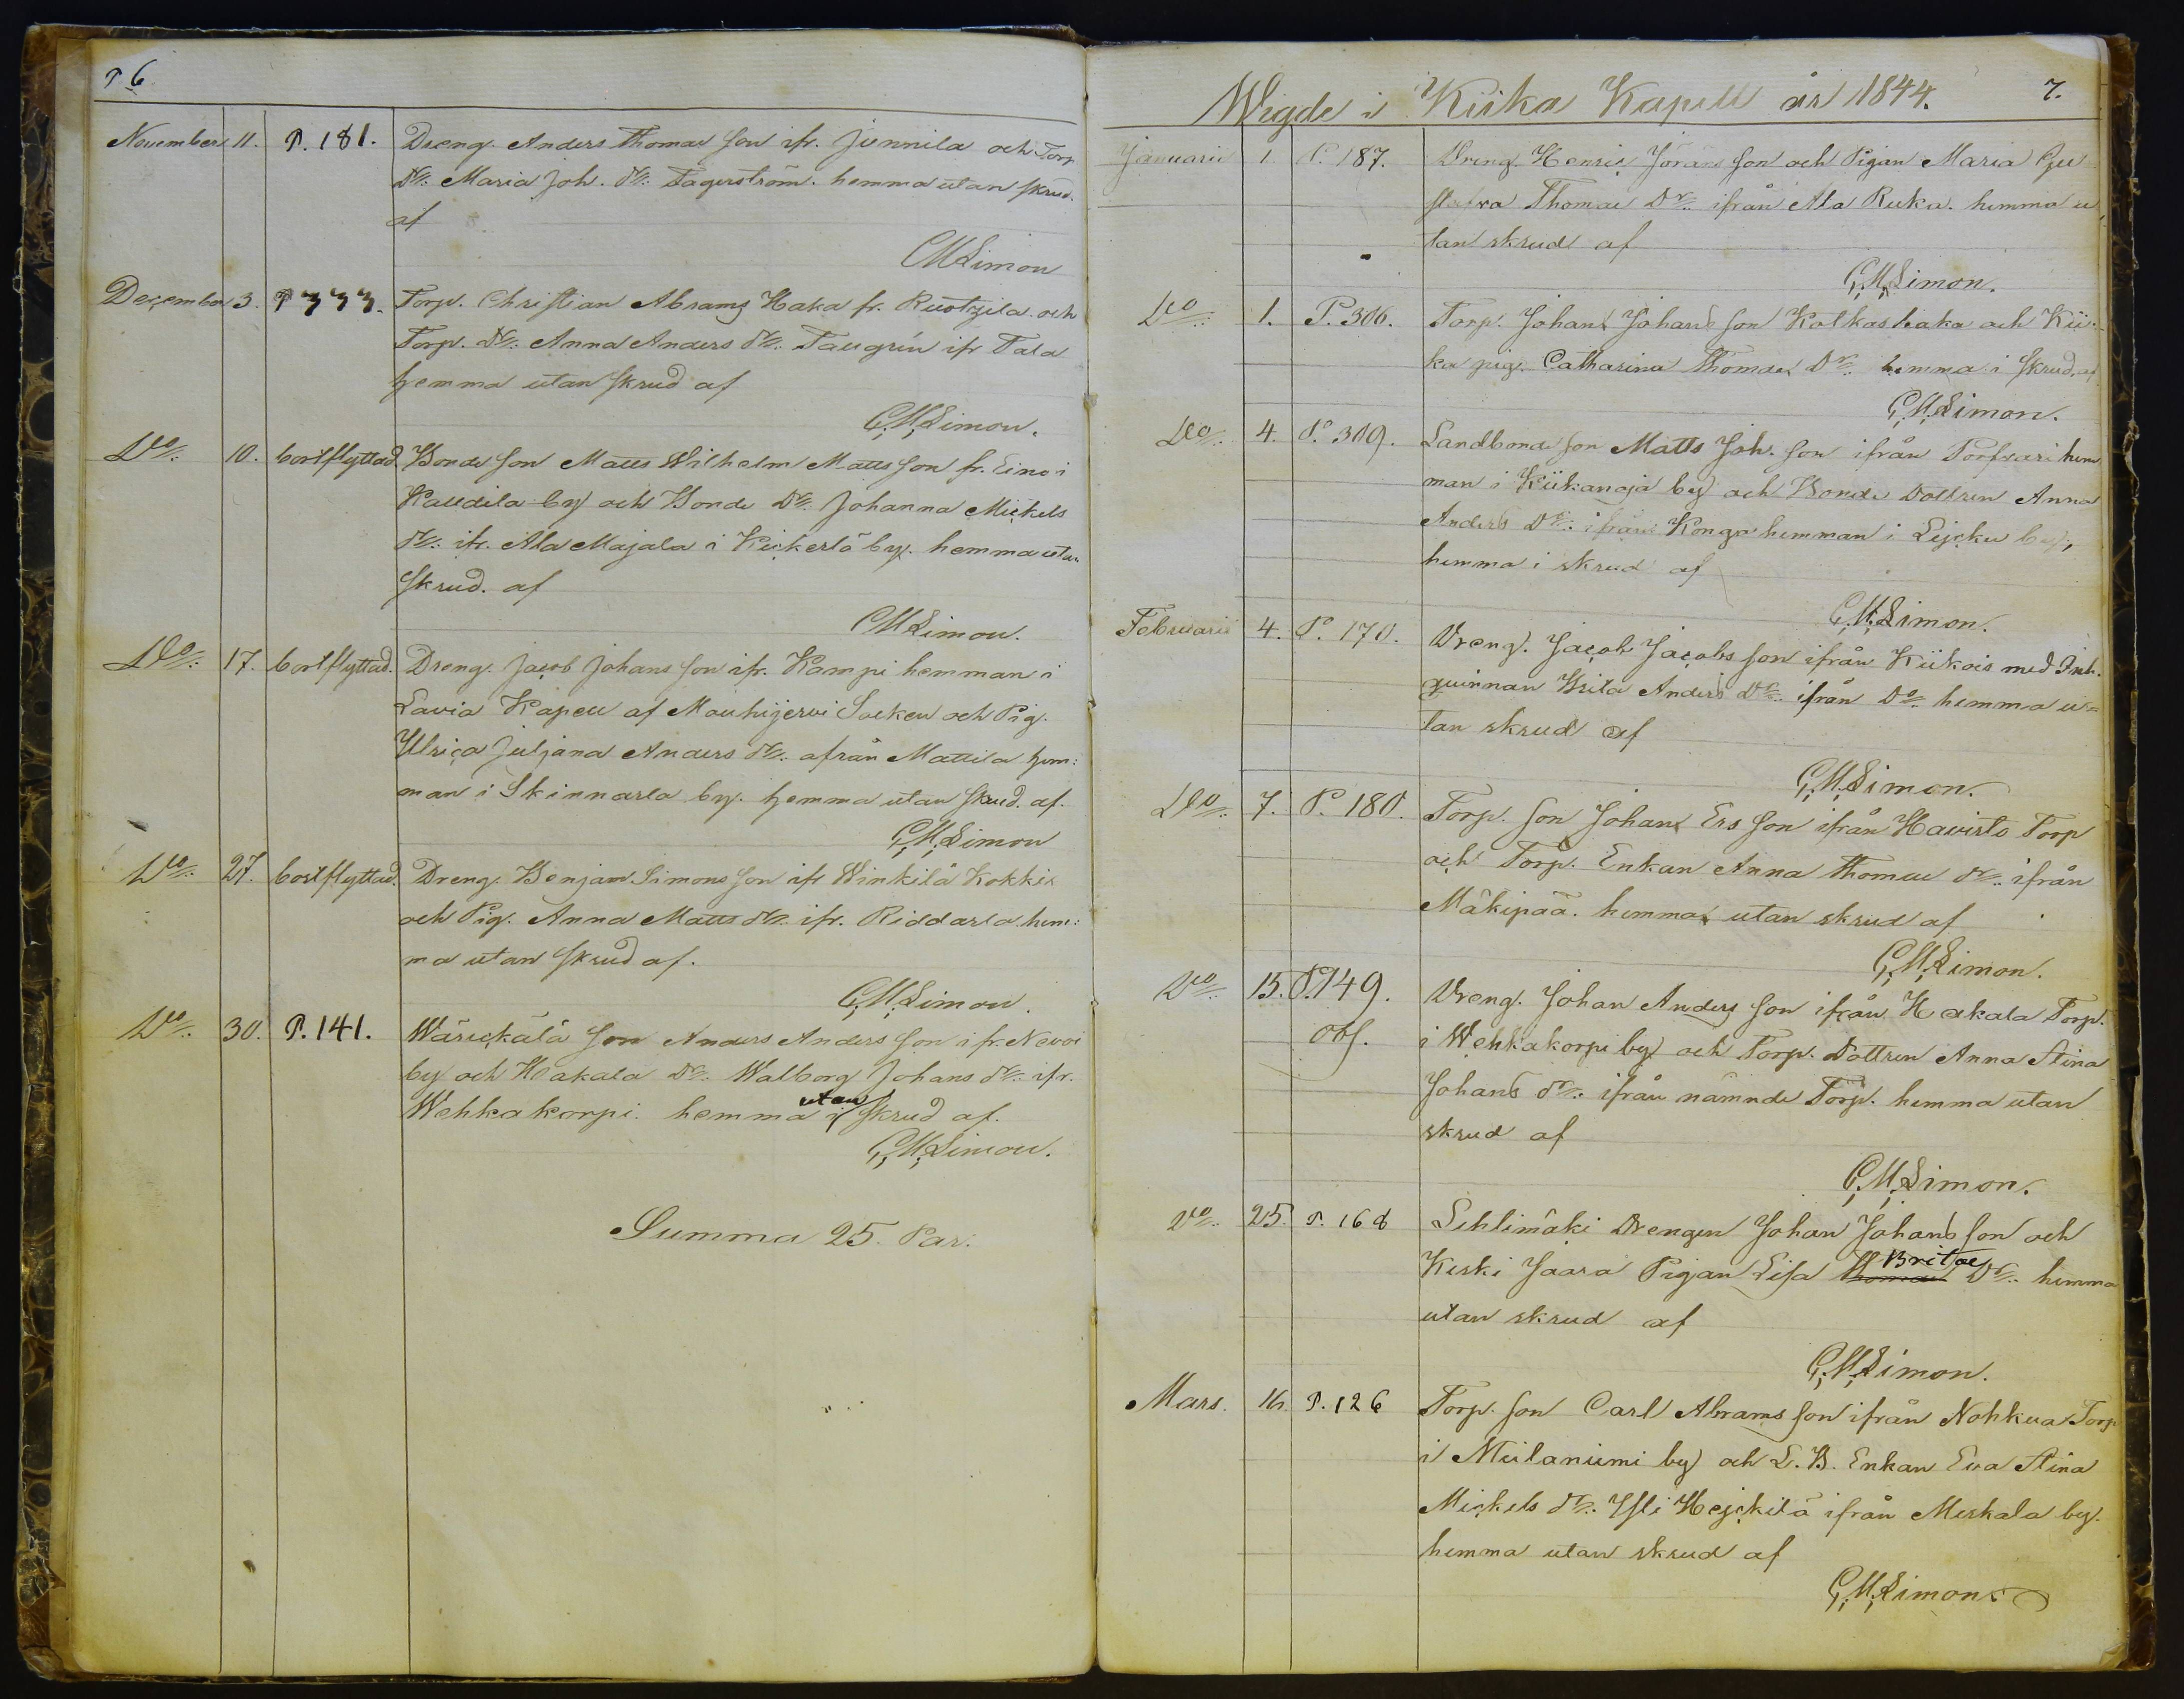 P 6
November 11. P. 181. Dreng. Anders Thomas Son ifr. Junnila och Torp
Dr: Maria Joh. dr: Fagerström. hemma utan skrud.
af
CMLimon
December 3. P 333. Torp. Christian Abrams Haka fr. Ruotzila och
Torp. Dr: Anna Anders dr: Taugrén ifr Tala
hemma utan skrud af
C.M.Limon.
Do: 10. bortflyttad. Bonde Son Matts Wilhelm Matts Son fr. Eino i
Kalldila by och Bonde Dr: Johanna Mickels
dr: ifr. Ala Majala i Kickerlä by. hemma utan
skrud. af
CMLimon.
Do: 17. bortflyttad. Dreng. Jacob Johans Son ifr. Kampi hemman i
Lavia Kapell af Mouhijervi Socken och Pig.
Ulrica Juljana Anders dr: afrån Mattila hem:
man i Skinnarla by. hemma utan skrud. af.
C.M.Limon
Do: 27. bortflyttad. Dreng. Benjam. Simons Son ifr Winkilä Kokkis
och Pig. Anna Matts dr: ifr. Riddarla hem:
ma utan skrud af.
C.M.Limon.
Do: 30. P. 141. Wäreckälä Son Anders Anders Son ifr. Nevoi
by och Haakala Dr: Walborg Johans dr: ifr.
Wehkakorpi. hemma i utan skrud af.
C.M.Limon.
Summa 25. Par.
Wigde i Kiika Kapell år 1844. 7.
Januarii 1. P. 187. Dreng. Henric Jörans Son och Pigan Maria Gu
stava Thomae Dr: ifrån Ala Ruka. hemma u
tan skrud af
C.M.Limon.
Do: 1. P. 306. Torp. Johan Johans Son Kalkashaka och Kii-
ka pig. Catharina Thomas Dr: hemma i skrud. af
C.M.Limon.
Do: 4. P. 309. Landbonde Son Matts Joh. Son ifrån Porfvari hem
man i Kiikanoja by och Bonde Dottren Anna
Anders Dr: ifrån Konga hemman i Leijcku by,
hemma i skrud af
C.M.Limon.
Februarii 4. P. 170. Dreng. Jacob Jacobs Son ifrån Kiikois med Inh.
qvinnan Brita Anders Dr: ifrån Do: hemma u=
tan skrud af
C.M.Limon.
Do: 7. P. 180. Torp. Son Johan Ers Son ifrån Havisto Torp
och Torp. Enkan Anna Thomae dr: ifrån
Mäkipää. hemma utan skrud af
C.M.Limon.
Do: 15. P. 149. Dreng. Johan Anders Son ifrån Hakala Torp.
obs. i Wehkakorpi by och Torp. Dottren Anna Stina
Johans dr: ifrån nämnde Torp. hemma utan
skrud af
C.M.Limon.
Do: 25. P. 168 Lehlimäki Drengen Johan Johans Son och
Keski Jaara Pigan Lisa Thomae Britae Dr: hemma
utan skrud af
C.M.Limon.
Mars. 16. P. 126 Torp. Son Carl Abrams Son ifrån Nohkua Torp
i Meilaniemi by och L. B. Enkan Eva Stina
Mickels dr: Ylli Hejckilä ifrån Meskala by.
hemma utan skrud af
C.M.Limon.